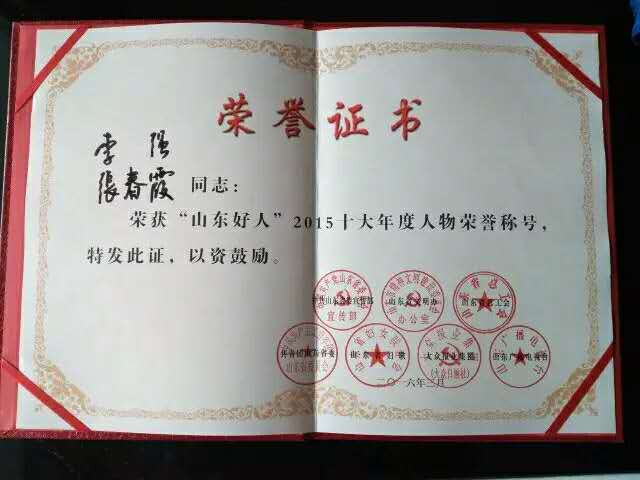 荣誉证书
李 强
張春霞 同志：
荣获“山东好人”2015十大年度人物荣誉称号，
特发此证，以资鼓励。
宣传部 山东省文明办 山东省总工会
办公室
大众报业集团 山东广播电视台
(大众日报社)
二〇一六年二月